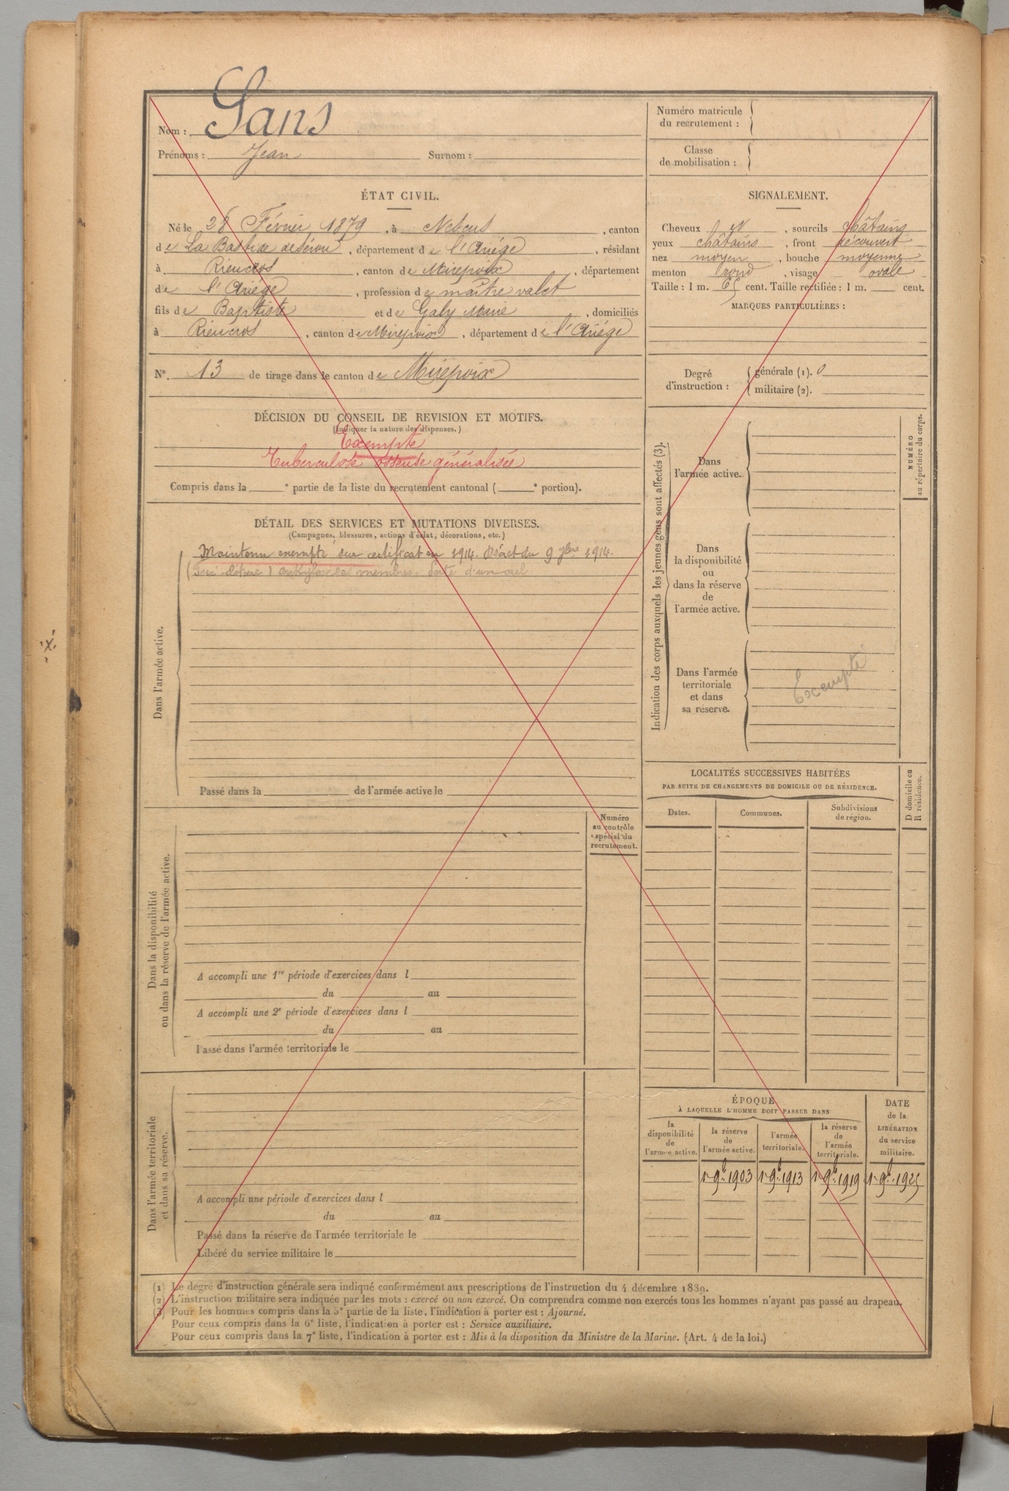 Nom : Sans
Prénoms : Jean Surnom :
Numéro matricule
du recrutement :
Classe
de mobilisation :
ÉTAT CIVIL.
Né le 28 Février 1879, à Nescus, canton
de La Bastide de Sérou, département de l'Ariége, résidant
à Rieucros, canton de Mirepoix, département
de l'Ariége, profession de maître valet
fils de Baptiste et de Galy Marie, domiciliés
à Rieucros, canton de Mirepoix, département de l'Ariége
N°. 13 de tirage dans le canton de Mirepoix
SIGNALEMENT.
Cheveux et, sourcils châtains
yeux châtains, front découvert
nez moyen, bouche moyenne
menton rond, visage ovale
Taille : 1 m. 65 cent. Taille rectifiée : 1 m. cent.
MARQUES PARTICULIÈRES :
Degré
d'instruction :
générale (1). 0
militaire (2).
DÉCISION DU CONSEIL DE REVISION ET MOTIFS.
(Indiquer la nature des dispenses.)
Exempté
Tuberculose osseuse généralisée
Compris dans la e partie de la liste du recrutement cantonal ( e portion).
DÉTAIL DES SERVICES ET MUTATIONS DIVERSES.
(Campagnes, blessures, actions d'éclat, décorations, etc.)
Maintenu exempté sur certificat en 1914. Décret du 9 7bre 1914.
membres perte d'un œil
Dans l'armée active.
Passé dans la de l'armée active le
Indication des corps auxquels les jeunes gens sont affectés (3).
Dans
l'armée active.
NUMÉRO
au répertoire du corps.
Dans
la disponibilité
ou
dans la réserve
de
l'armée active.
Dans l'armée
territoriale
et dans
sa réserve.
Exempté
LOCALITÉS SUCCESSIVES HABITÉES
PAR SUITE DE CHANGEMENTS DE DOMICILE OU DE RÉSIDENCE.
Dates. Communes. Subdivisions
de région.
D domicile ou
R résidence.
Numéro
au contrôle
spécial du
recrutement.
Dans la disponibilité
ou dans la réserve de l'armée active.
A accompli une 1re période d'exercices dans l
du au
A accompli une 2e période d'exercices dans l
du au
Passé dans l'armée territoriale le
Dans l'armée territoriale
et dans sa réserve.
A accompli une période d'exercices dans l
du au
Passé dans la réserve de l'armée territoriale le
Libéré du service militaire le
ÉPOQUE
À LAQUELLE L'HOMME DOIT PASSER DANS
la
disponibilité
de
l'armée active.
la réserve
de
l'armée active.
l'armée
territoriale.
la réserve
de
l'armée
territoriale.
DATE
de la
LIBÉRATION
du service
militaire.
1er 9bre 1903 1er 9bre 1913 1er 9bre 1919 1er 9bre 1925
(1) Le degré d'instruction générale sera indiqué conformément aux prescriptions de l'instruction du 4 décembre 1889.
(2) L'instruction militaire sera indiquée par les mots : exercé ou non exercé. On comprendra comme non exercés tous les hommes n'ayant pas passé au drapeau.
(3) Pour les hommes compris dans la 5e partie de la liste, l'indication à porter est : Ajourné.
Pour ceux compris dans la 6e liste, l'indication à porter est : Service auxiliaire.
Pour ceux compris dans la 7e liste, l'indication à porter est : Mis à la disposition du Ministre de la Marine. (Art. 4 de la loi.)